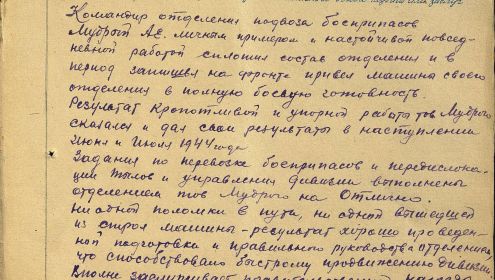 Командир отделения подвоза боеприпасов
Мудрый А.Е. личным примером и настойчивой повсед-
невной работой сплотил состав отделения и в
период затишья на фронте привел машины своего
отделения в полную боевую готовность.
Результат кропотливой и упорной работы тов Мудрого
сказался и дал свои результаты в наступлении
Июня и Июля 1944 года
Задания по перевозке боеприпасов и передислока-
ции тылов и управления дивизии выполнены
отделением тов Мудрого на Отлично.
ни одной поломки в пути, ни одной вышедшей
из строя машины - результат хорошо проведен-
ной подготовки и правильного руководства отделением
что способствовало быстрому продвижению дивизии
Вполне заслуживает